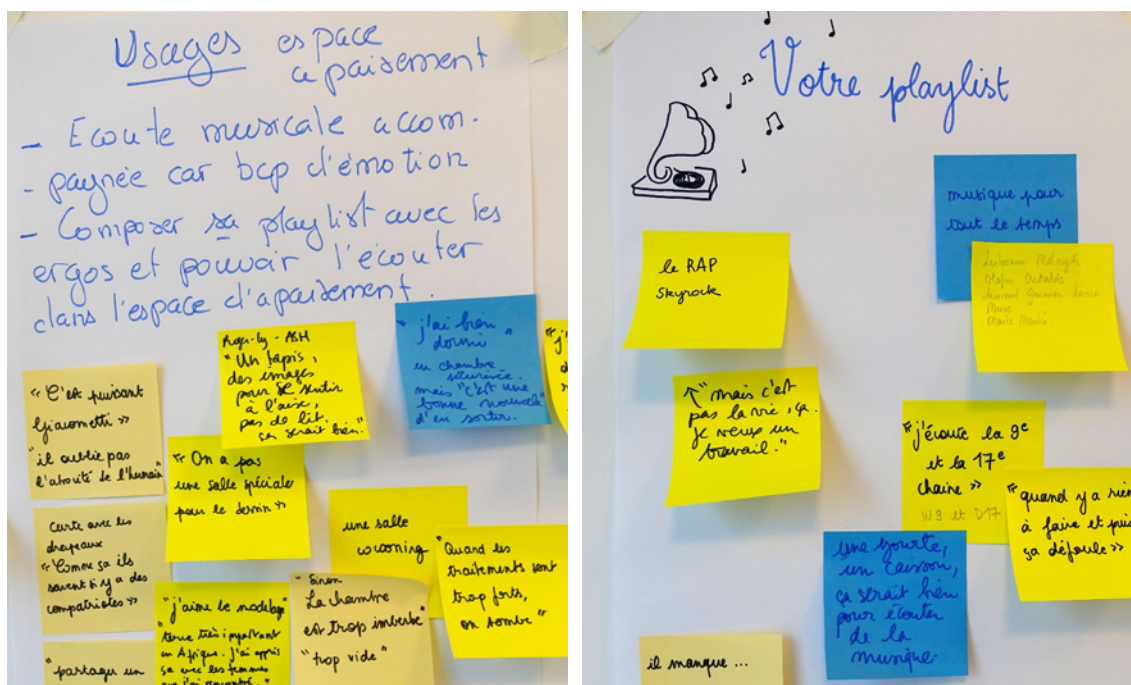 Usages espace
apaisement
- Ecoute musicale accom-
- pagnée car bcp d'émotion
- Composer sa playlist avec les
ergos et pouvoir l'écouter
dans l'espace d'apaisement.
"j'ai bien
dormi"
en chambre
sécurisée.
mais "c'est une
bonne nouvelle"
d'en sortir.
- ASH
"Un tapis,
des images
pour se sentir
à l'aise,
pas de lit.
ça serait bien."
« C'est puissant
Giacometti »
"il oublie pas
l'atrocité de l'humain"
« On a pas
une salle spéciale
pour le dessin »
Carte avec les
drapeaux
« Comme ça ils
savent si y a des
compatriotes »
une salle
cocooning
"Quand les
traitements sont
trop forts,
on sombre"
"j'aime le modelage"
"terre très important
en Afrique. J'ai appris
ça avec les femmes
que j'ai rencontré."
"Sinon
La chambre
est trop imberbe"
"trop vide"
"partager un
Votre playlist
musique pour
tout le temps
le RAP
Skyrock
Lubomir Melnyk
Laurent Garnier
Muse
↑ "mais c'est
pas la vie, ça.
je veux un
travail."
« j'écoute la 9e
et la 17e
chaine »
W9 et D17
« quand y a rien
à faire et puis
ça défoule »
une yourte,
un caisson,
ça serait bien
pour écouter
de la
musique.
il manque ...